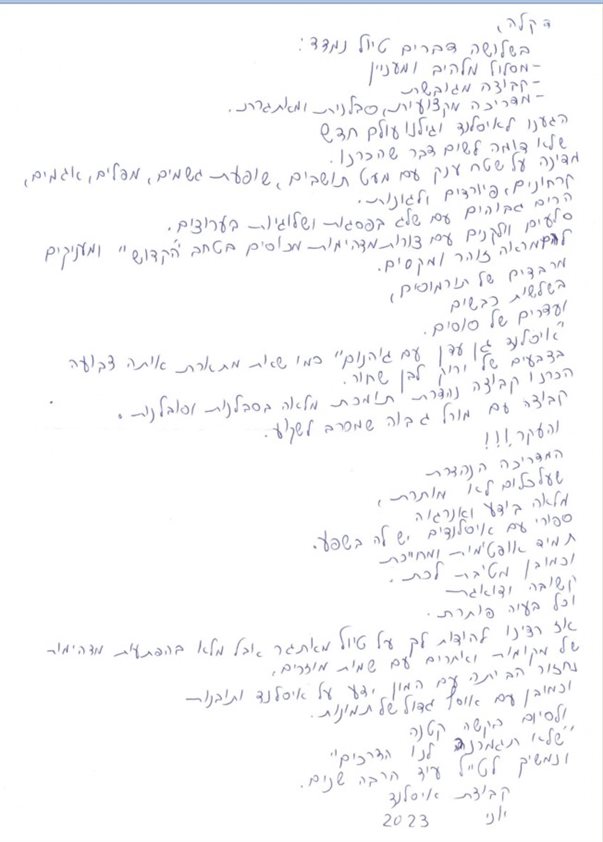 דקלה,
בשלושה דברים טיול נמדד:
-מסלול מלהיב ומעניין
-קבוצה מגובשת
-מדריכה מקצועית, סבלנית ומאתגרת.
הגענו לאיסלנד וגילנו עולם חדש
שלא דומה לשום דבר שהכרנו.
מדינה על שטח ענק עם מעט תושבים, שופעת גשמים, מפלים, אגמים,
קרחונים, פיורדים ולגונות.
הרים גבוהים עם שלג בפסגות ושלוגיות בערוצים.
סלעים וולקנים עם צורות מדהימות מכוסים בטחב "הקדוש" ומעניקים
מראה זוהר ומקסים.
מרבדים של תורמוסים,
בשלשות כבשים
ועדרים של סוסים.
"איסלנד גן עדן עם גיהנום" כמו שאת מתארת איתה צבועה
בצבעים של ירוק לבן שחור.
הכרנו קבוצה נהדרת תומכת מלאה בסבלנות וסובלנות.
קבוצה עם מורל גבוה שמסרב לשקוע.
והעקר!!!
המדריכה הנהדרת
שעל כלום לא מותרת,
מלאה בידע ואנרגיה
ספורי עם איסלנדים יש לה בשפע.
תמיד אופטימית ומחייכת
וכמובן מטיבת לכת.
קשובה ודואגת
וכל בעיה פותרת.
אז רצינו להודות לך על טיול מאתגר אבל מלא בהפתעות מדהימות
של מקומות ואתרים עם שמות מוזרים,
נחזור הביתה עם המון ידע על איסלנד ותובנות
וכמובן עם אוסף גדול של תמונות.
ולסיום בקשה קטנה
"שלא תגמרנה לנו הדרכים"
ונמשיך לטייל עוד הרבה שנים.
קבוצת איסלנד
יוני 2023